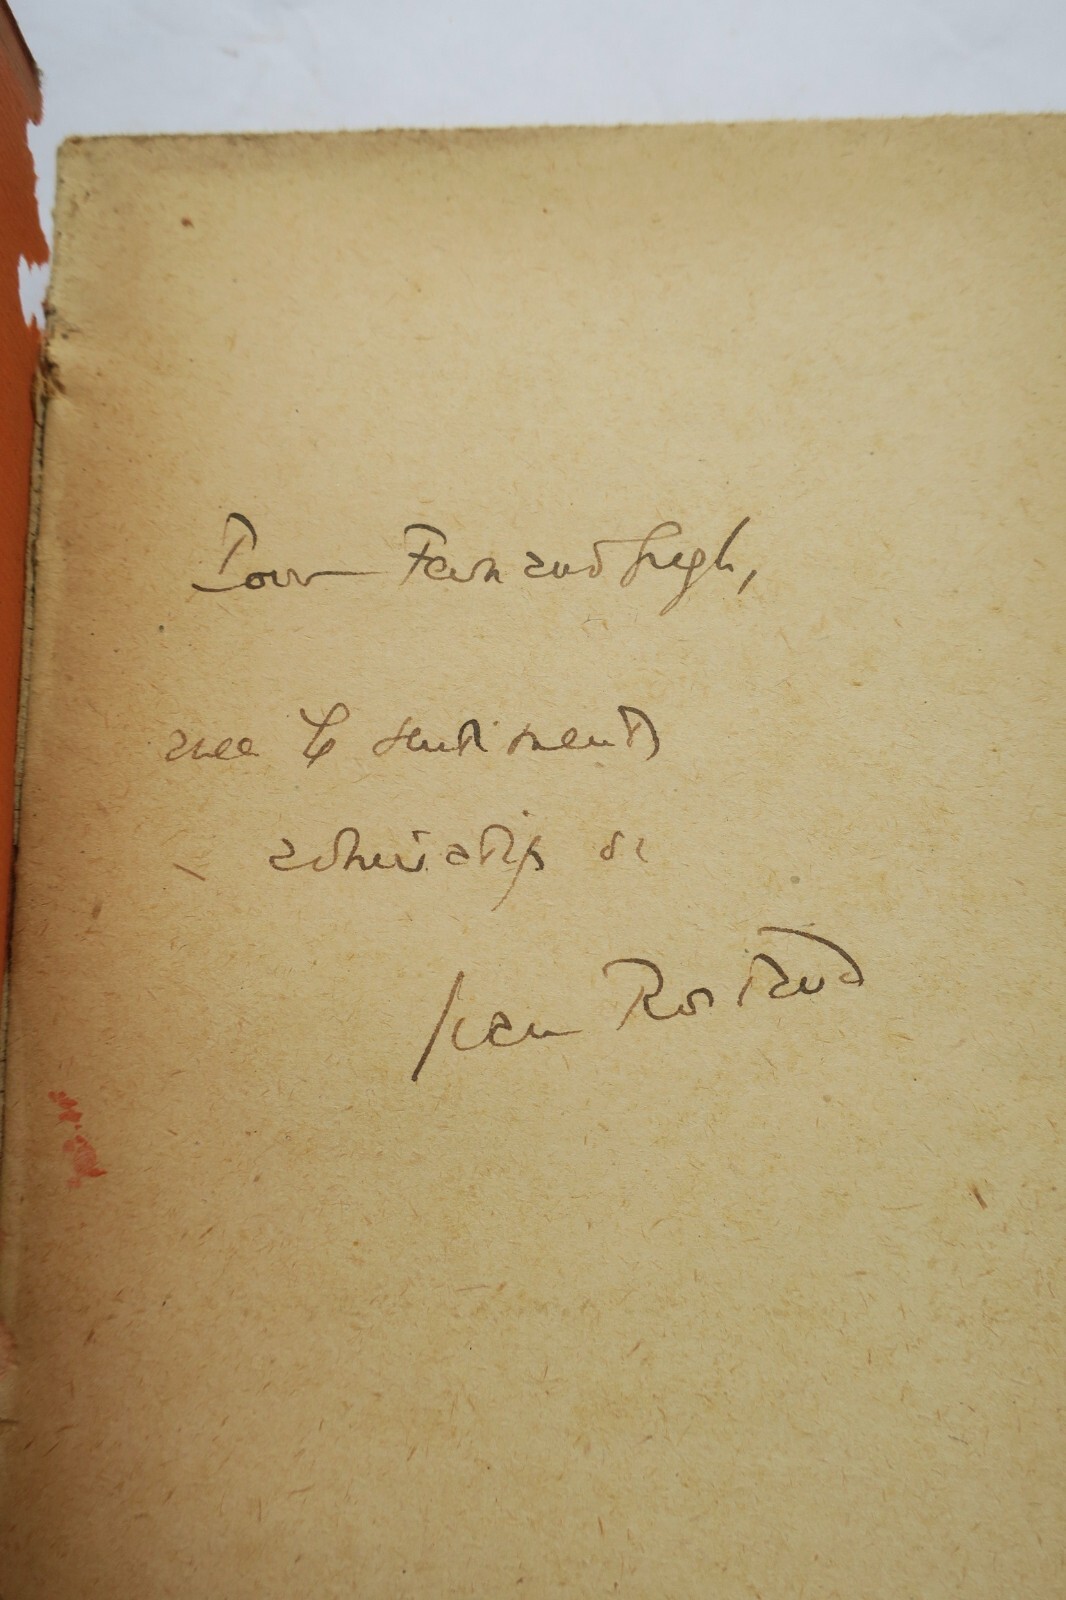 Pour Fernand Gregh,
avec les sentiments
admiratifs de
Jean Rostand